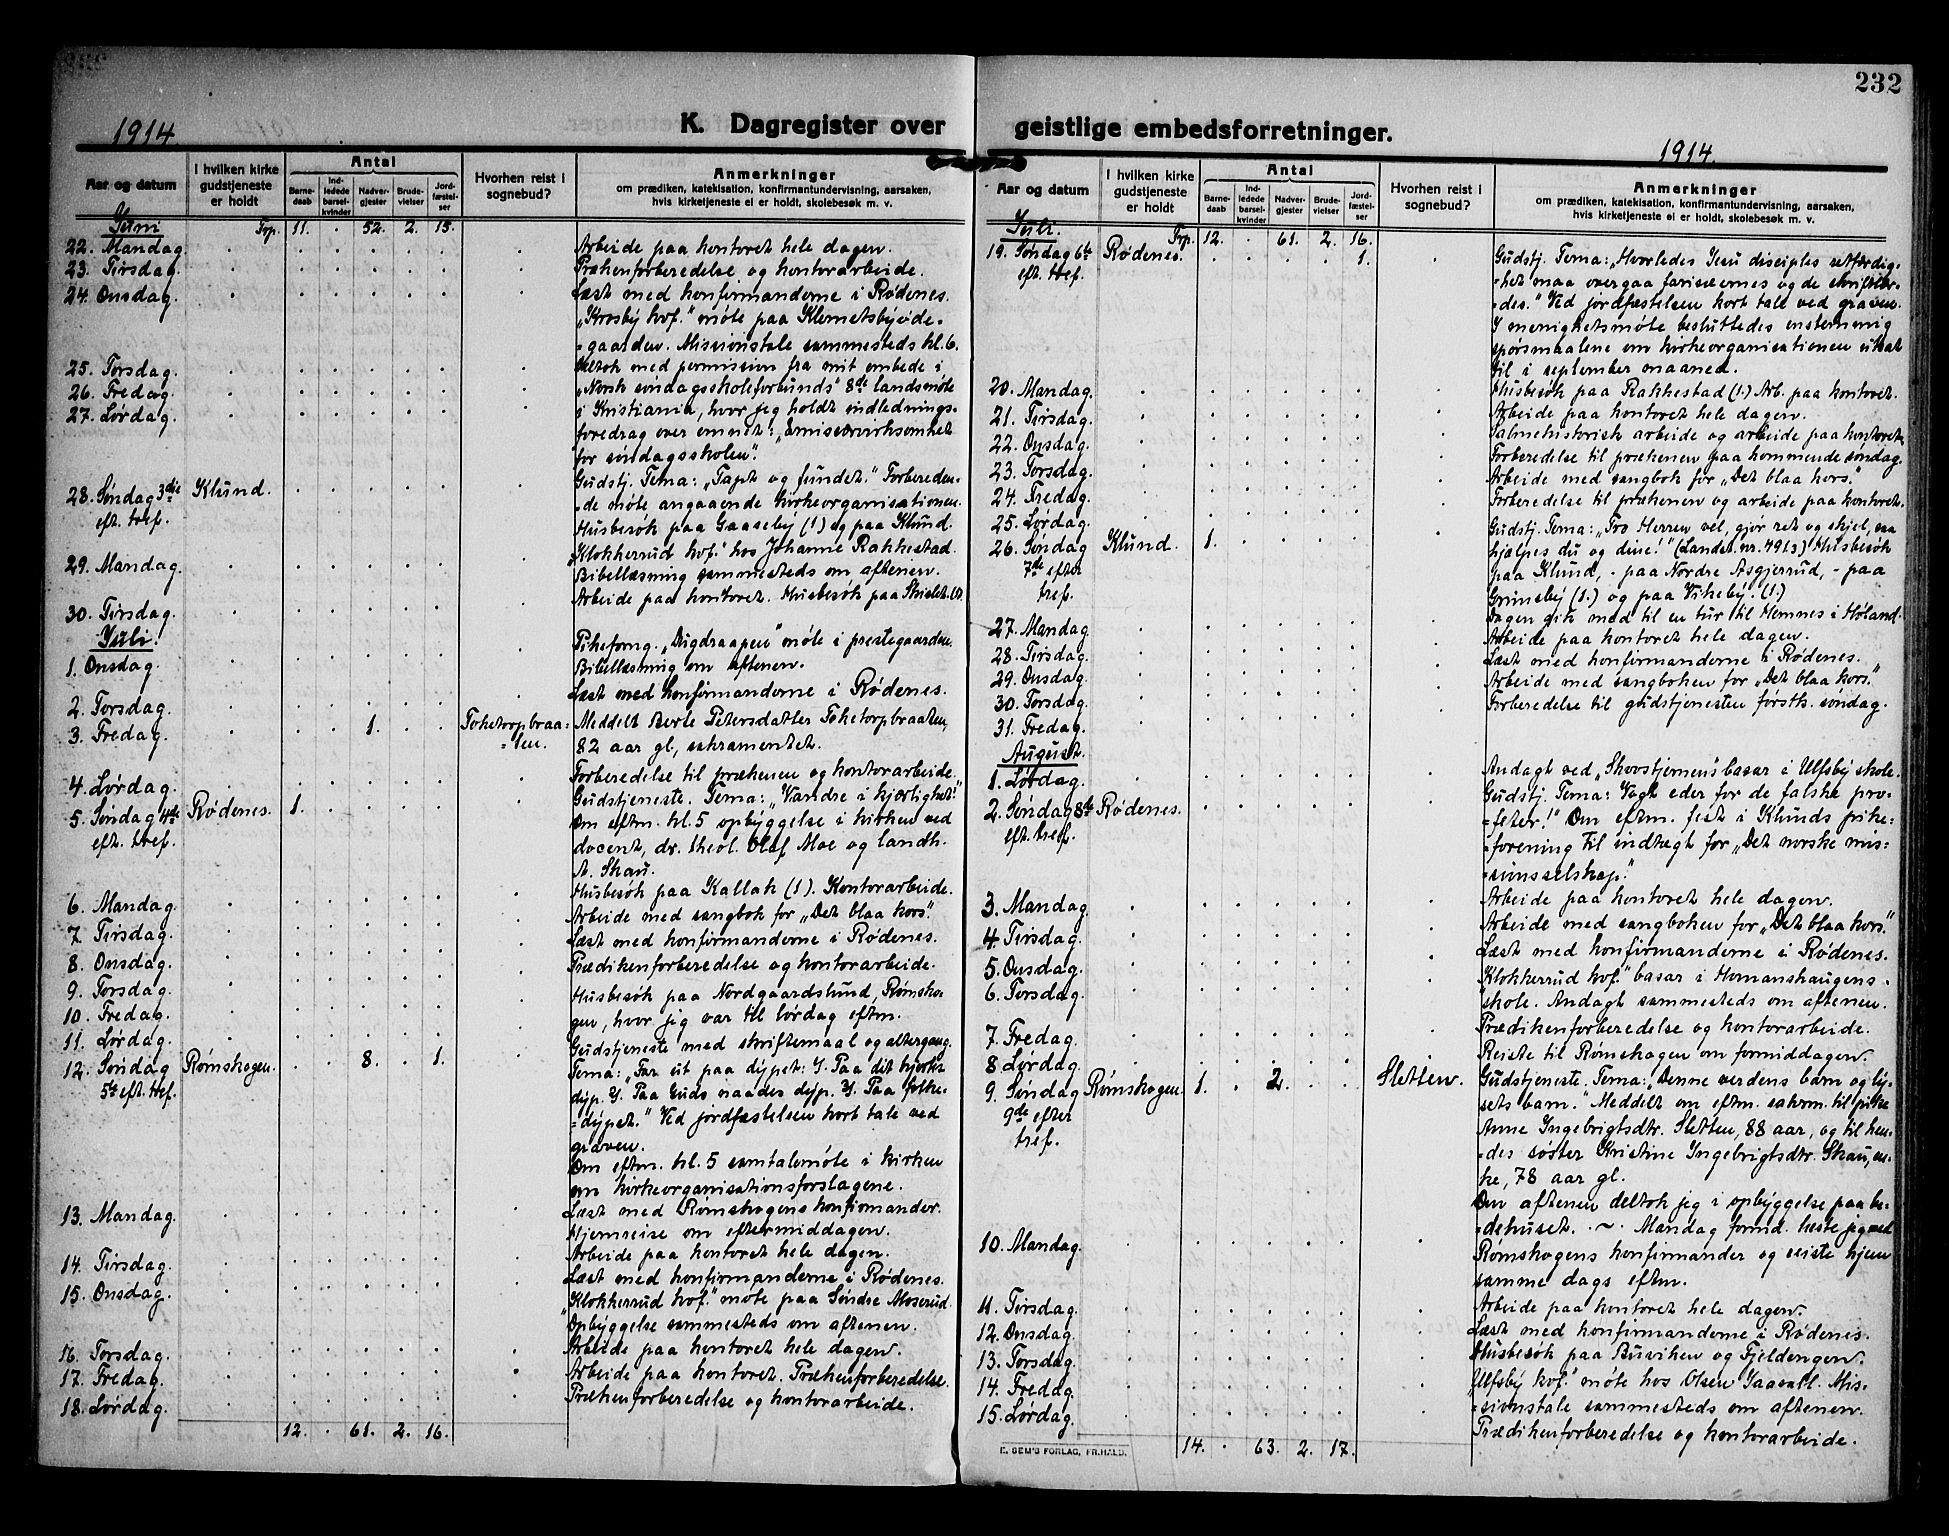 232
K. Dagregister over geistlige embedsforretninger.
1914.
Aar og datum
I hvilken kirke gudstjeneste er holdt
Antal
Barnedaab
Indledede barselkvinder
Nadvergjester
Brudevielser
Jordfæstelser
Hvorhen reist i sognebud?
Anmerkninger
om prædiken, katekisation, konfirmantundervisning, aarsaken,
hvis kirketjeneste ei er holdt, skolebesøk m. v.
Juni Trp. 11. . 52. 2. 15.
22. Mandag. Arbeide paa kontoret hele dagen.
23. Tirsdag. Prækenforberedelse og kontorarbeide.
24. Onsdag. Læst med konfirmanderne i Rødenes.
„Krosby kvf." møte paa Klemetsbyøde-
=gaarden. Missionstale sammesteds kl. 6.
25. Torsdag. Deltok med permission fra mit embede i
26. Fredag. „Norsk søndagsskoleforbunds" 8de landsmøte
27. Lørdag. i Kristiania, hvor jeg holdt indlednings-
foredrag over emnet: „Emissærvirksomhet
for søndagsskolen".
28. Søndag 3die Klund. Gudstj. Tema: „Tapt og fundet." Forbereden-
eft. tref. =de møte angaaende kirkeorganisationen.
Husbesøk paa Gaaseby (1) og paa Klund.
29. Mandag. „Klokkerud kvf." hos Johanne Rakkestad.
Bibellæsning sammesteds om aftenen.
30. Tirsdag. Arbeide paa kontoret. Husbesøk paa
Juli.
1. Onsdag. Pikeforng. „Dugdraapen" møte i prestegaarden.
Bibellæsning om aftenen.
2. Torsdag. Læst med konfirmanderne i Rødenes.
3. Fredag. 1. Toketorpbraa= Meddelt Berte Petersdatter Toketorpbraaten,
=ten. 82 aar gl., sakramentet.
4. Lørdag. Forberedelse til prækenen og kontorarbeide.
5. Søndag 4de Rødenes. 1. Gudstjeneste. Tema: „Vandre i kjærlighet!"
eft. tref. Om eftm. kl. 5 opbyggelse i kirken ved
docent, dr. theol. Olaf Moe og landh.
A. Skau.
6. Mandag. Husbesøk paa Kallak (1). Kontorarbeide.
7. Tirsdag. Arbeide med sangbok for „Det blaa kors".
8. Onsdag. Læst med konfirmanderne i Rødenes.
9. Torsdag. Prædikenforberedelse og kontorarbeide.
10. Fredag. Husbesøk paa Nordgaardslund, Rømsko-
11. Lørdag. gen, hvor jeg var til lørdag eftm.
12. Søndag Rømskogen. 8. . 1. Gudstjeneste med skriftemaal og altergang.
5te eft. tref. Tema: „Far ut paa dypet: I Paa dit hjertes
dyp. I. Paa Guds naades dyp. I. Paa folke-
=dypet." Ved jordfæstelsen kort tale ved
graven.
Om eftm. kl. 5 samtalemøte i kirken
om kirkeorganisationsforslagene.
13. Mandag. Læst med Rømskogens konfirmander.
Hjemreise om eftermiddagen.
14. Tirsdag. Arbeide paa kontoret hele dagen.
15. Onsdag. Læst med konfirmanderne i Rødenes.
„Klokkerrud kvf." møte paa Søndre Moserud.
Opbyggelse sammesteds om aftenen.
16. Torsdag. Arbeide paa kontoret hele dagen.
17. Fredag. Arbeide paa kontoret. Prækenforberedelse.
18. Lørdag. Prækenforberedelse og kontorarbeide.
12. . 61. 2. 16.
1914.
Aar og datum
I hvilken kirke gudstjeneste er holdt
Antal
Barnedaab
Indledede barselkvinder
Nadvergjester
Brudevielser
Jordfæstelser
Hvorhen reist i sognebud?
Anmerkninger
om prædiken, katekisation, konfirmantundervisning, aarsaken,
hvis kirketjeneste ei er holdt, skolebesøk m. v.
Juli. Trp. 12. . 61. 2. 16.
19. Søndag 6te Rødenes. 1. Gudstj. Tema: „Hvorledes Jesu disciples retfærdig-
eft. tref. =het maa overgaa farisæernes og de skriftlær-
=des." Ved jordfæstelsen kort tale ved graven.
I menighetsmøte besluttedes enstemmig
spørsmaalene om kirkeorganisationen utsat
til i september maaned.
20. Mandag. Husbesøk paa Rakkestad (1.) Arb. paa kontoret.
21. Tirsdag. Arbeide paa kontoret hele dagen.
22. Onsdag. Salmehistorisk arbeide og arbeide paa kontoret.
23. Torsdag. Forberedelse til prækenen paa kommende søndag.
24. Fredag. Arbeide med sangbok for „Det blaa kors."
25. Lørdag. Forberedelse til prækenen og arbeide paa kontoret.
26. Søndag Klund. 1. Gudstj. Tema: „Tro Herren vel, gjør ret og skjel, saa
7de efter hjælpes du og dine!" (Landst. nr. 491.3) Husbesøk
tref. paa Klund, - paa Nordre Asgjerrud, - paa
Grimsby (1.) og paa Vikeby. (1.)
27. Mandag. Dagen gik med til en tur til Hemnes i Høland.
28. Tirsdag. Arbeide paa kontoret hele dagen.
29. Onsdag. Læst med konfirmanderne i Rødenes.
30. Torsdag. Arbeide med sangboken for „Det blaa kors."
31. Fredag. Forberedelse til gudstjenesten førstk. søndag.
August.
1. Lørdag. Andagt ved „Skovstjernens" basar i Ulfsby skole.
2. Søndag 8de Rødenes. Gudstj. Tema: Vogt eder for de falske pro-
eft. tref. =feter!" Om eftm. fest i Klunds pike-
=forening til indtægt for „Det norske mis-
=sionsselskap."
3. Mandag. Arbeide paa kontoret hele dagen.
4. Tirsdag. Arbeide med sangboken for „Det blaa kors."
5. Onsdag. Læst med konfirmanderne i Rødenes.
6. Torsdag. „Klokkerrud kvf." basar i Homanshaugens
skole. Andagt sammesteds om aftenen.
7. Fredag. Prædikenforberedelse og kontorarbeide.
8. Lørdag. Reiste til Rømskogen om formiddagen.
9. Søndag Rømskogen. 1. . 2. Sletten. Gudstjeneste. Tema: „Denne verdens barn og ly-
9de efter sets barn." Meddelt om eftm. sakrm. til pike
tref. Anne Ingebrigtsdtr. Sletten, 88 aar, og til hen-
=des søster Kristine Ingebrigtsdtr. Skau, en-
ke, 78 aar gl.
Om aftenen deltok jeg i opbyggelse paa be-
10. Mandag. =dehuset. - ~ - Mandag formd. læste jeg med
Rømskogens konfirmander og reiste hjem
samme dags eftm.
11. Tirsdag. Arbeide paa kontoret hele dagen.
12. Onsdag. Læst med konfirmanderne i Rødenes.
13. Torsdag. Husbesøk paa Buviken og Fjeldengen.
14. Fredag. „Ulfsby kvf." møte hos Olsen Taavall. Mis-
15. Lørdag. =sionstale sammesteds om aftenen.
Prædikenforberedelse og kontorarbeide.
E. SEM'S FORLAG, FR.HALD.
14. . 63. 2. 17.